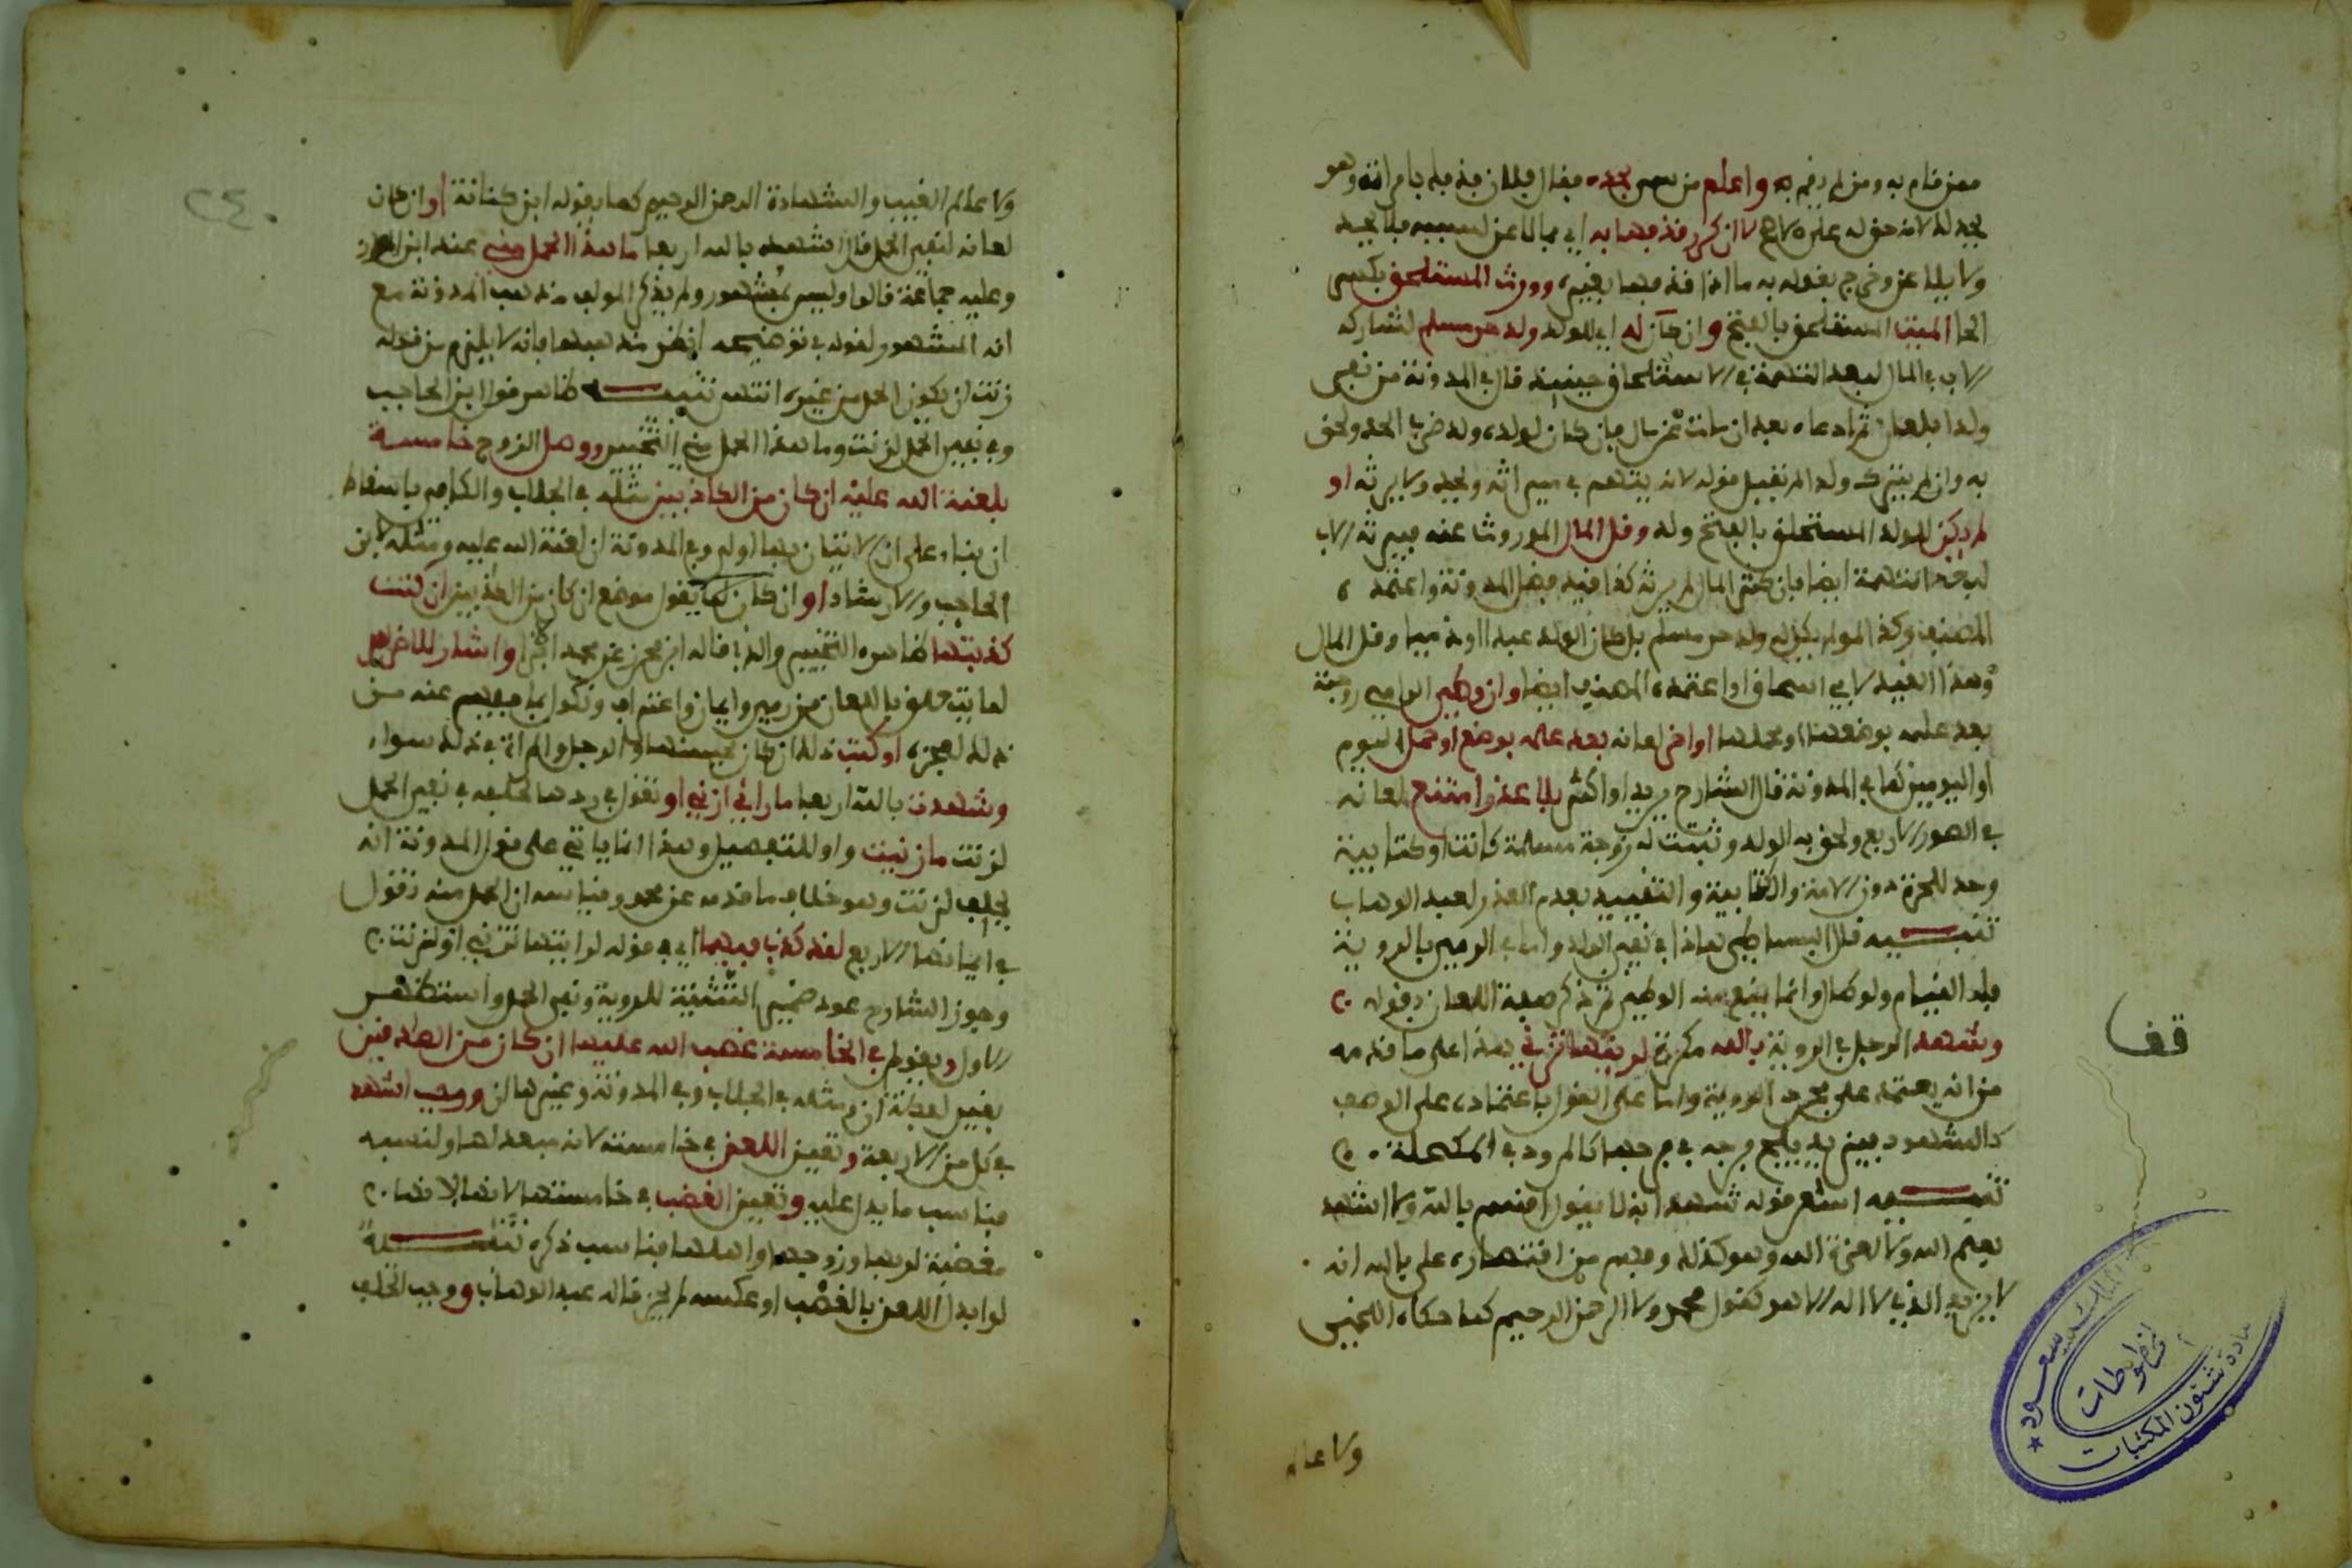 ممن قام به ومن لم يقم به واعلم من يسمى بحده فقال فلان قذفك بامرأته وهو
يحد له لانه حق له عليه لا ان كرر قذفها به اي بما لاعن لسببه فلا يحد
ولا يلاعن وخرج بقوله به ما اذا قذفها بغيره وورث المستلحق بكسر
الحا الميت المستلحق بالفتح وان كان له اي للولد ولد حر مسلم لتشاركه
الاب في المال لبعد التهمة في الاستلحاق حينئذ قال في المدونة من نفى
ولدا بلعان ثم ادعاه بعد ان مات عن مال فان كان لولده ولد ضرب الحد ولحق
به وان لم يترك ولدا لم يقبل قوله لانه يتهم في ميراثه ويحد ولا يرثه او
لم يكن للولد المستحلق بالفتح ولد وقل المال الموروث عنه فيرثه الاب
لبعد التهمة ايضا فان كثر المال لم يرثه كذا قيد فضل المدونة واعتمده
المصنف وكذا لو لم يكن له ولد حر مسلم بل كان الولد عبدا او ذميا وقل المال
وهذا القيد لابي اسحاق واعتمده المصنف ايضا وان وطئ الرامي زوجته
بعد علمه بوضعها او حملها او اخر لعانه بعد علمه بوضع او حمل اليوم
او اليومين كما في المدونة قال الشارح يريد او اكثر بلا عذر امتنع لعانه
في الصور الاربع ولحق به الولد وثبتت له زوجة مسلمة كانت او كتابية
وحد للحرة دون الامة والكتابية والتقييد بعدم العذر لعبد الوهاب
تنبيه قال البساطي هذا في نفي الولد واما في الرمي بالروية
فله القيام ولو طال وانما يمنع منه الوطئ ثم ذكر صفة اللعان بقوله
وشهد الرجل في الروية بالله مكررة لرايتها تزني هذا على ما قدمه
من انه يعتمد على مجرد الروية واما على القول باعتماده على الوصف
كالشهود فيزيد يلج فرجه في فرجها كالمرود في المكحلة
تنبيه اشعر قوله شهد انه لا يقول اقسم بالله ولا اشهد
بعلم الله ولا بعزة الله وهو كذلك وفهم من اقتصاره على بالله انه
لا يزيد الذي لا اله الا هو كقول محمد ولا الرحمن الرحيم كما حكاه اللخمي
ولا عالم
قف
مخطوطات
عمادة شئون المكتبات
٢٤٠
ولا عالم الغيب والشهادة الرحمن الرحيم كما يقوله ابن كنانة او ان كان
لعانه لنفي الحمل قال اشهد بالله اربعا ما هذا الحمل مني عند ابن المواز
وعليه جماعة قالوا وليس بمشهور ولم يذكر المولف مذهب المدونة مع
انه المشهور لقوله في توضيحه انظر مذهبها فانه لا يلزم من قوله
زنت ان يكون الحمل من غيره انتهى تنبيه ظاهر قول ابن الحاجب
وفي نفي الحمل لزنت وما هذا الحمل مني التخيير ووصل الزوج خامسة
بلعنة الله عليه ان كان من الكاذبين مثله في الجلاب والكافي باسقاط
ان بناء على ان الاتيان بها اولى وفي المدونة ان لعنة الله عليه ومثله لابن
الحاجب والارشاد او ان كان كما يقول موضع ان كان من الكاذبين ان كنت
كذبتها كما هو التخيير والذي قاله ابن محرز عن محمد اجزا واشار للاخرس
لما يتعلق باللعان من رمي وايمان واعتراف ونكول بما يفهم عنه من
ذلك لعجزه او كتب ذلك ان كان يحسنها والرجل والمراة في ذلك سواء
وشهدت بالله اربعا ما راني ازني او تقول في ردها لحلفه في نفي الحمل
لزنت ما زنيت واو للتفصيل وهذا انما ياتي على قول المدونة انه
يحلف لزنت وهو خلاف ما قدمه عن محمد وقياسه ان الحمل منه وتقول
في ايمانها الاربع لقد كذب فيهما اي في قوله لرايتها تزني او لزنت
وجوز الشارح عود ضمير التثنية للروية ونفي الحمل واستظهر
الاول وتقول في الخامسة غضب الله عليها ان كان من الصادقين
بغير لفظة ان ومثله في الجلاب وفي المدونة وغيرها ان ووجب اشهد
في كل من الاربعة وتعين اللعن في خامسته لانه مبعد لها ولنسبه
فناسب ما يدل عليه وتعين الغضب في خامستها لانها
مغضبة لربها وزوجها واهلها فناسب ذكره تنبيه
لو ابدل اللعن بالغضب او عكسه لم يجز قاله عبد الوهاب ووجب الحلف